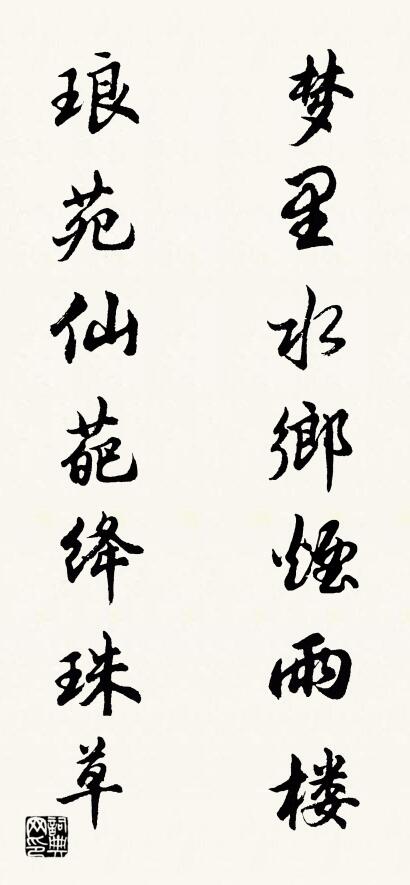 梦里水鄉煙雨楼
琅苑仙葩绛珠草
詞典网印